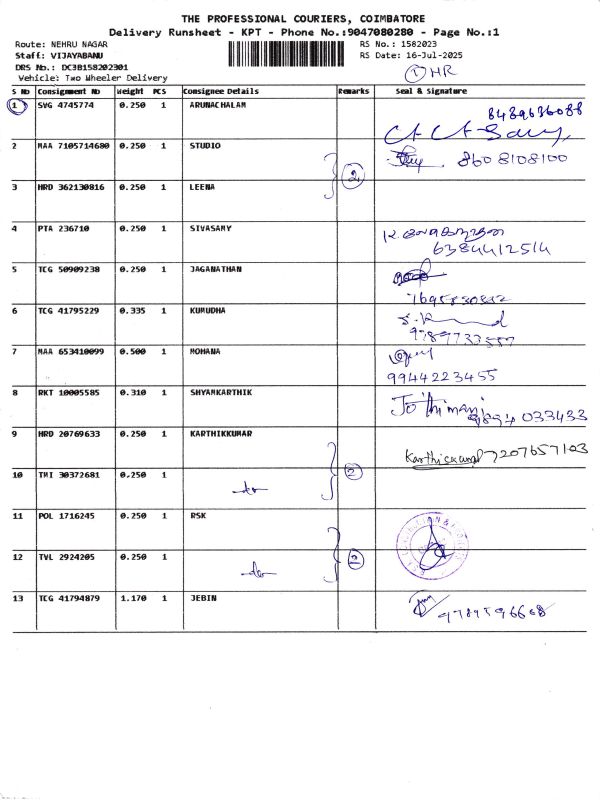 THE PROFESSIONAL COURIERS, COIMBATORE
Delivery Runsheet - KPT - Phone No.:9047080280 - Page No.:1
Route: NEHRU NAGAR RS No.: 1582023
Staff: VIJAYABANU RS Date: 16-Jul-2025
DRS No.: DC3B158202301
Vehicle: Two Wheeler Delivery 1 HR
S No Consignment No Weight PCS Consignee Details Remarks Seal & Signature
1 SVG 4745774 0.250 1 ARUNACHALAM 8489636088
2 MAA 7105714680 0.250 1 STUDIO 2 8608108100
3 HRD 362130816 0.250 1 LEENA
4 PTA 236710 0.250 1 SIVASAMY
6384412514
5 TCG 50909238 0.250 1 JAGANATHAN
7695830832
6 TCG 41795229 0.335 1 KUMUDHA
9789733557
7 MAA 653410099 0.500 1 MOHANA
9944223455
8 RKT 10005585 0.310 1 SHYAMKARTHIK
9894 033433
9 HRD 20769633 0.250 1 KARTHIKKUMAR
Karthickumar 7207657103
10 TMI 30372681 0.250 1 do 2
11 POL 1716245 0.250 1 RSK
12 TVL 2924205 0.250 1 do 2
13 TCG 41794879 1.170 1 JEBIN 9789596668